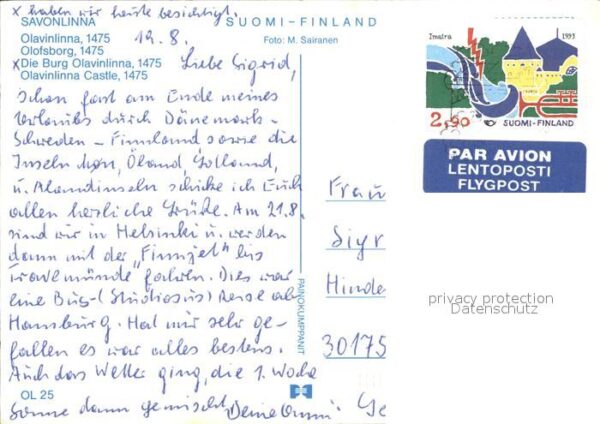 x haben wir heute besichtigt.
SAVONLINNA
SUOMI - FINLAND
Olavinlinna, 1475
19.8.
Foto: M. Sairanen
Olofsborg, 1475
x Die Burg Olavinlinna, 1475
Olavinlinna Castle, 1475
Liebe Sigrid,
schon fast am Ende meines
Urlaubs durch Dänemark-
Schweden - Finnland sowie die
Inseln Öland Gotland,
u. Alandinseln schicke ich Euch
allen herzliche Grüße. Am 21.8.
sind wir in Helsinki u. werden
dann mit der "Finnjet" bis
Travemünde fahren. Dies war
eine Bus-(Studiosus) Reise ab
Hamburg. Hat mir sehr ge-
fallen es war alles bestens.
Auch das Wetter ging, die 1. Woche
Sonne dann gemischt. Deine
OL 25
PAINOKUMPPANIT
Imatra
1993
2,90
SUOMI-FINLAND
PAR AVION
LENTOPOSTI
FLYGPOST
Frau
Sigr
Hinde
30175
privacy protection
Datenschutz